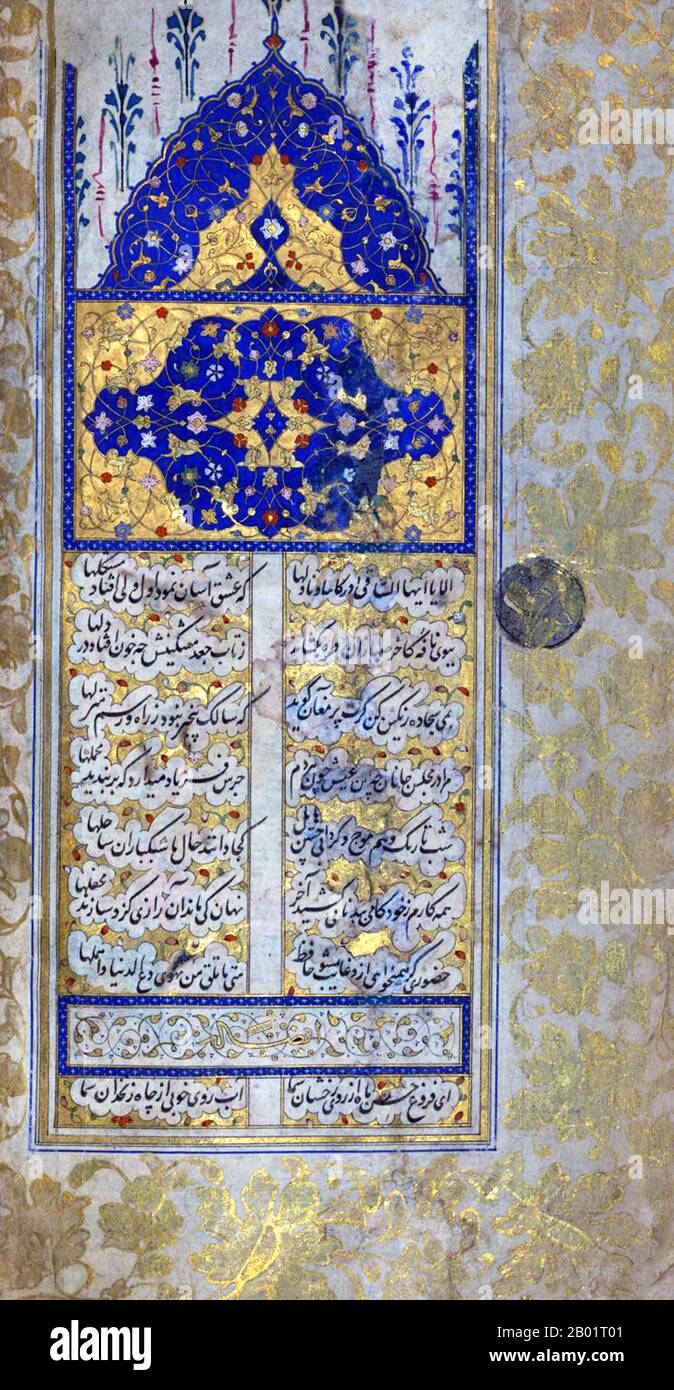 الا یا ایها الساقی ادر کاسا وناولها که عشق آسان نمود اول ولی افتاد مشکلها
ببوی نافه کاخر صبا زان طره بکشاید ز تاب جعد مشکینش چه خون افتاد در دلها
بمی سجاده رنگین کن گرت پیر مغان گوید که سالک بیخبر نبود ز راه و رسم منزلها
مرا در مجلس جانان چه امن عیش چون هر دم جرس فریاد میدارد که بربندید محملها
شب تاریک و بیم موج و گردابی چنین هایل کجا دانند حال ما سبکباران ساحلها
همه کارم ز خود کامی ببدنامی کشید آخر نهان کی ماند آن رازی کزو سازند محفلها
حضوری گر همیخواهی ازو غایب مشو حافظ متی ما تلق من تهوی دع الدنیا واهملها
ایضا له
ای فروغ حسن ماه از روی رخشان شما آب روی خوبی از چاه زنخدان شما
alamy
Image ID: 2B01T01
www.alamy.com